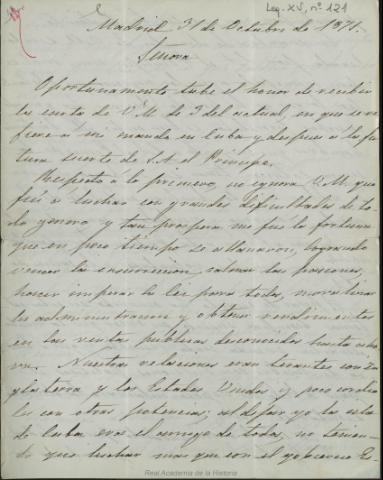 Leg. XV, nº 121
Madrid 31 de Octubre de 1871.
Señora
Oportunamente tube el honor de recibir
la carta de V.M. de 3 del actual, en que se re
fiere á mi mando en Cuba y despues á la fu
tura suerte de S.A. el Principe.
Respecto á lo primero, no ignora V.M. que
fui á luchar con grandes dificultades de to
do genero y tan prospera me fué la fortuna
que en poco tiempo se allanaron, logrando
vencer la insurreccion, calmar las pasiones,
hacer imperar la ley para todos, moralizar
la administracion y obtener rendimientos
en las rentas publicas desconocidos hasta
Nuestras relaciones eran tirantes con In
glaterra y los Estados Unidos, y poco cordia
les con otras potencias; al dejar yo la isla
de Cuba era el amigo de todos, no tenien
do que luchar mas que con el gobierno Es
Real Academia de la Historia